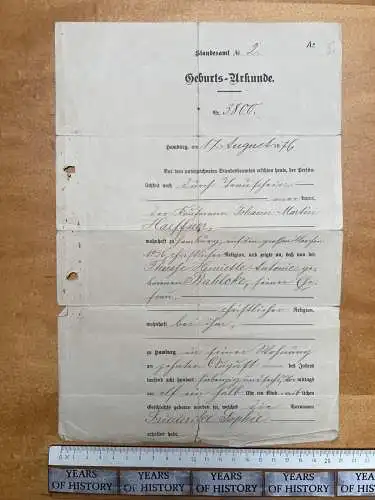 Standesamt № 2.
A1
Geburts-Urkunde.
Nr. 3800.
Hamburg, am 17 August 1876
Vor dem unterzeichneten Standesbeamten erschien heute, der Persön-
lichkeit nach durch Trauschein
der Kaufmann Johann Martin
Haeffner,
wohnhaft zu Hamburg, auf dem großen
christlicher Religion, und zeigte an, daß von der
Therese Henriette Antonie ge-
borenen Bahlcke, seiner Ehe-
frau,
christlicher Religion,
wohnhaft bei ihm,
zu Hamburg in seiner Wohnung
am zehnten August des Jahres
tausend acht hundert siebenzig und sechs Vor mittags
um elf ein halb Uhr ein Kind weiblichen
Geschlechts geboren worden sei, welches die Vornamen
Friederike Sophie
erhalten habe.
YEARS OF HISTORY
YEARS OF HISTORY
YEARS OF HISTORY
YEARS OF HISTORY